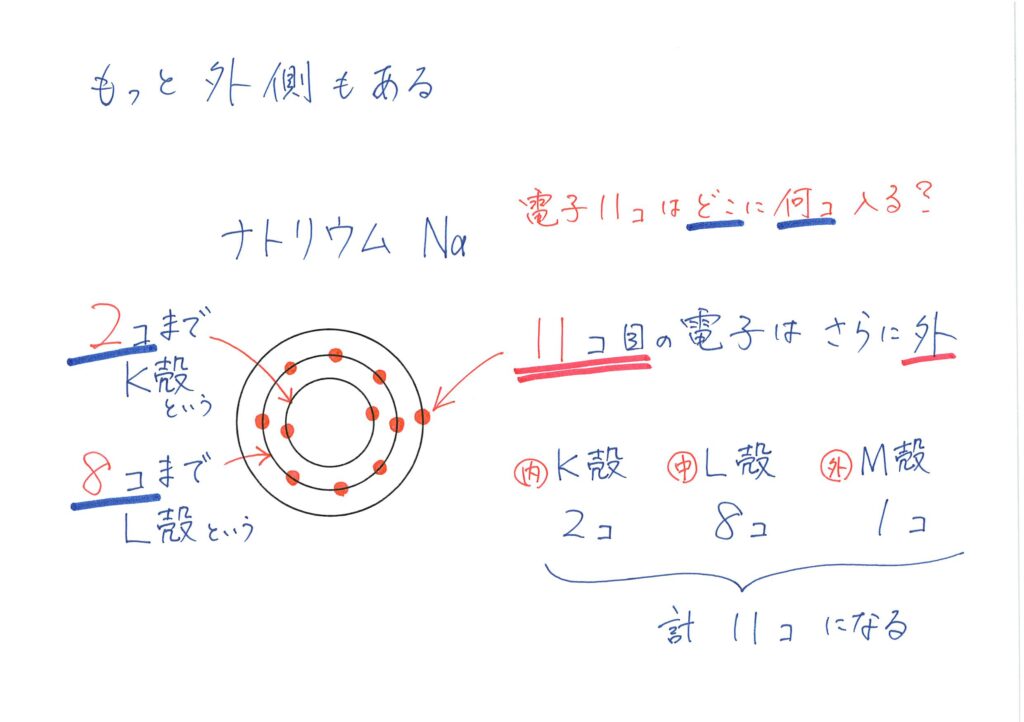 もっと外側もある
電子11コはどこに何コ入る?
ナトリウム Na
2コまで
K殻
という
8コまで
L殻という
11コ目の電子はさらに外
内K殻 中L殻 外M殻
2コ 8コ 1コ
計 11コ になる